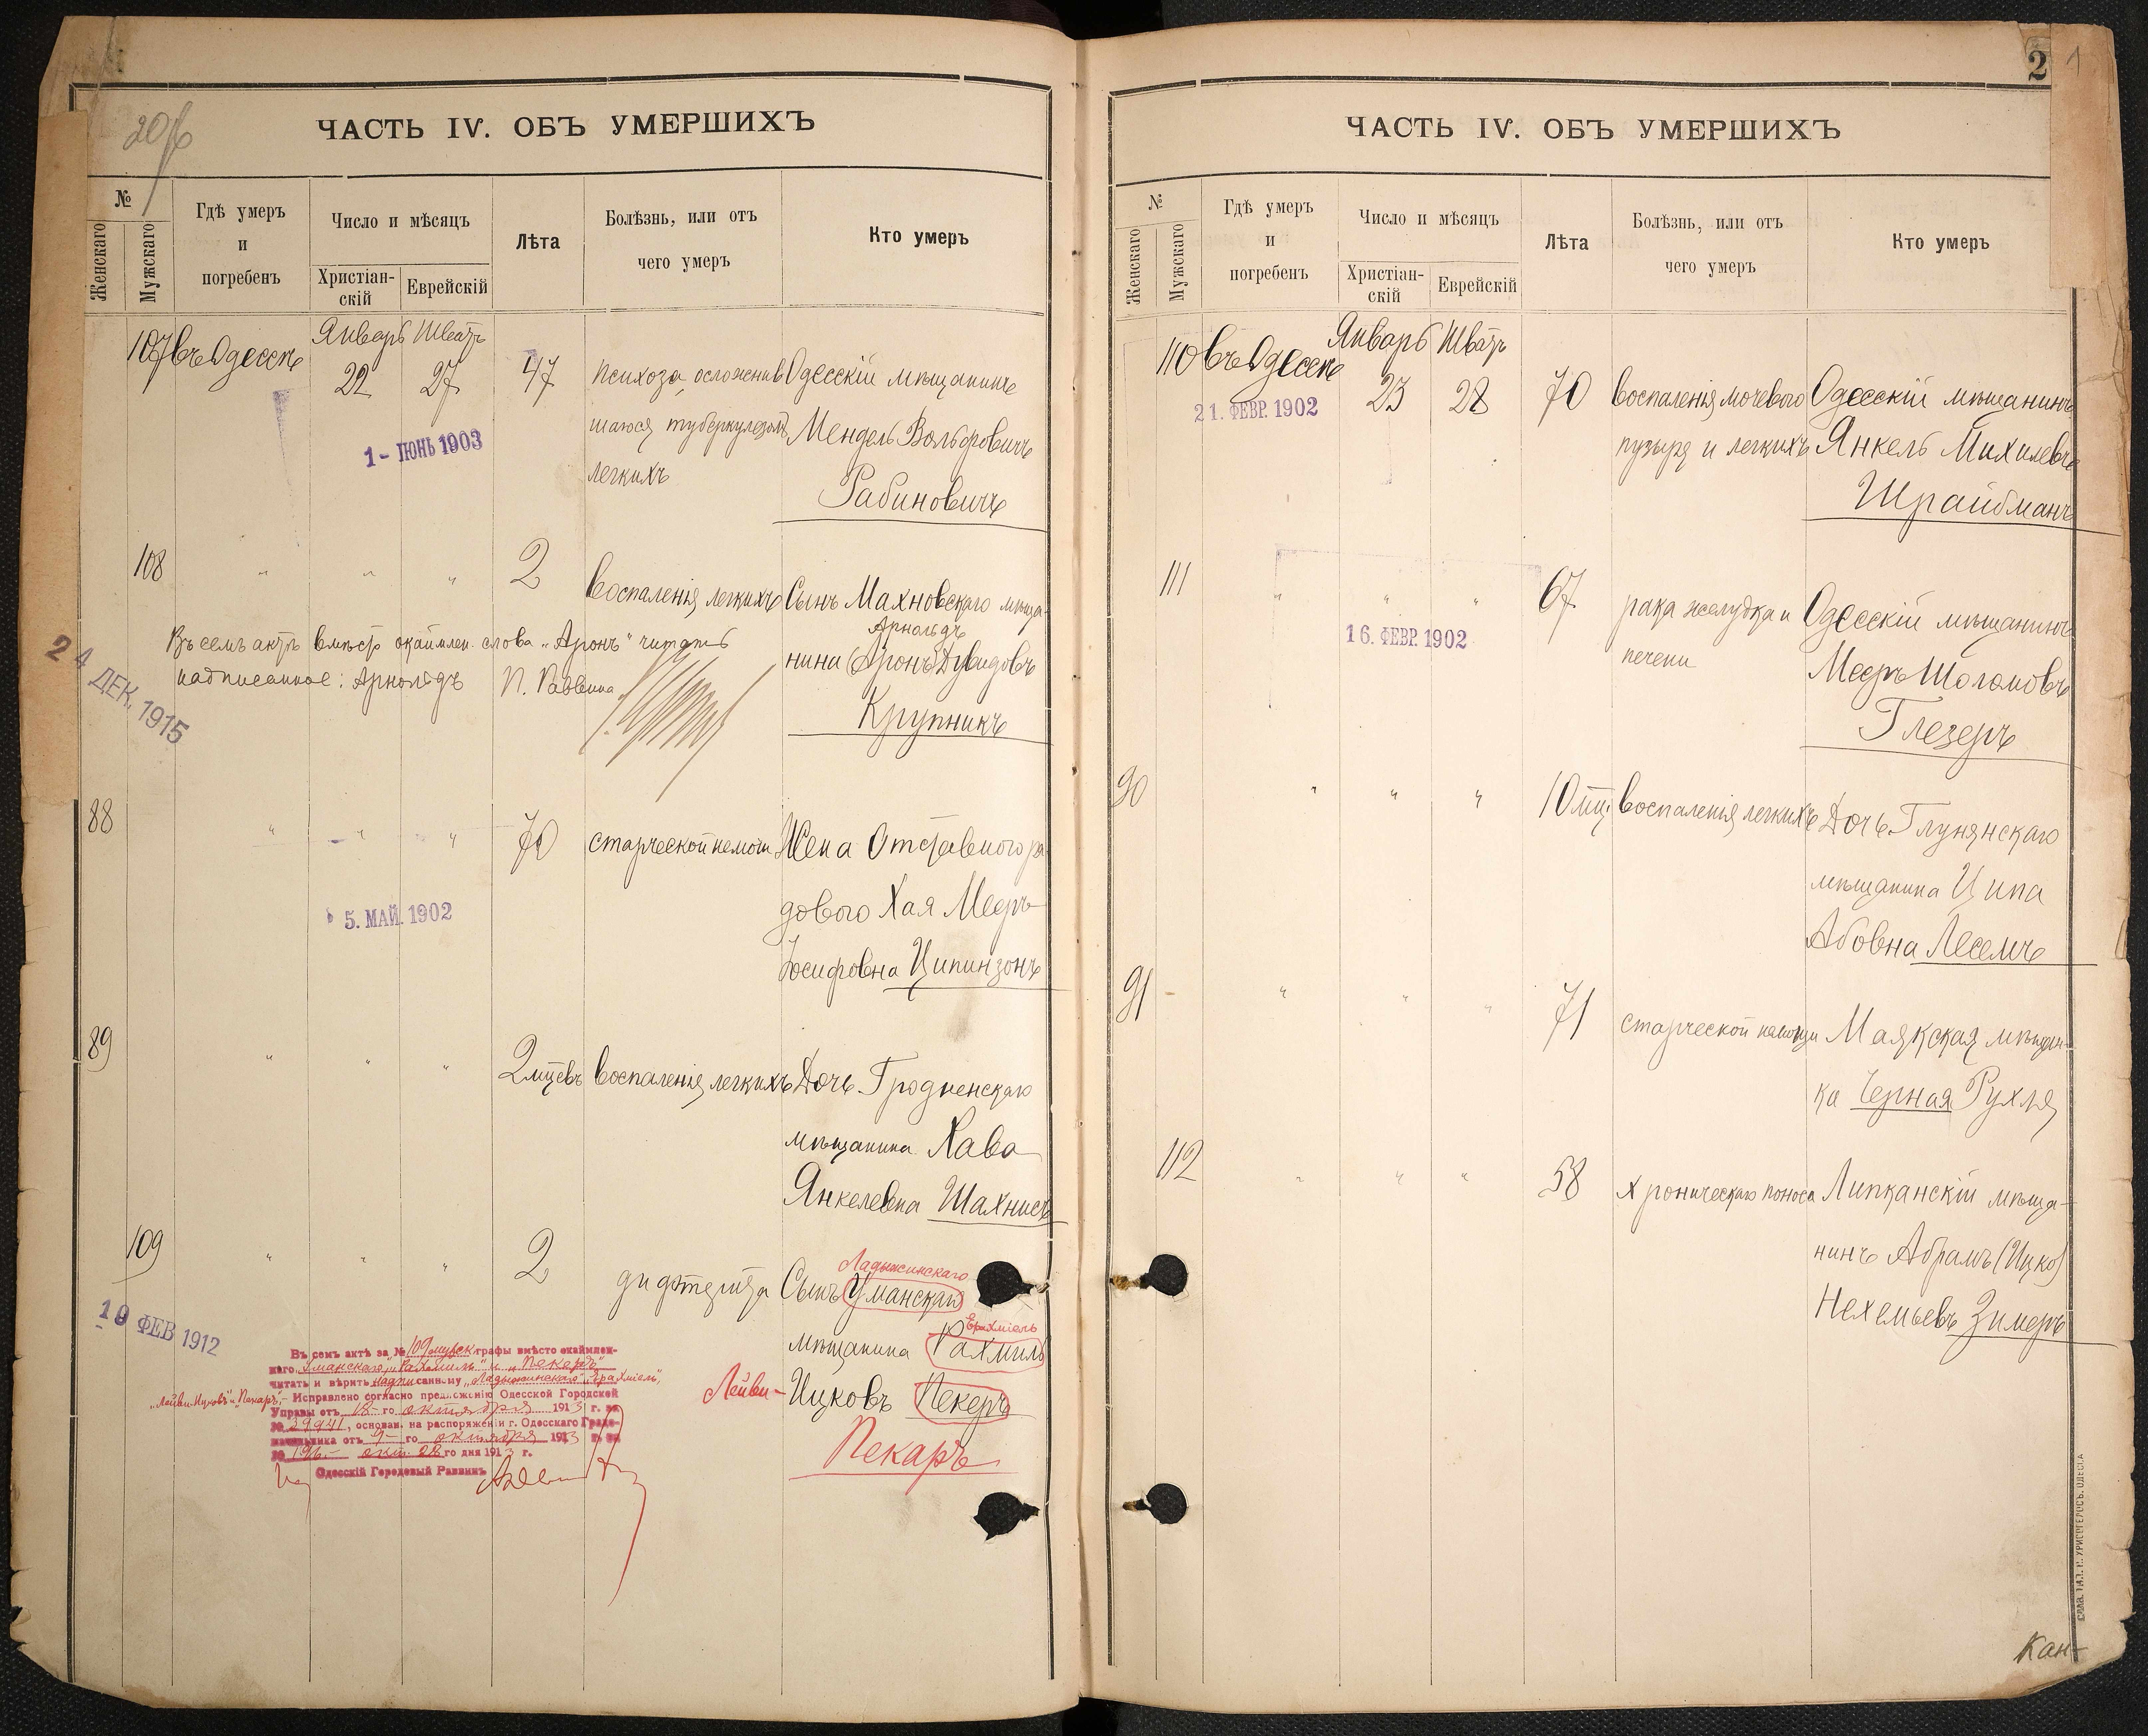 20
ЧАСТЬ IV. ОБЪ УМЕРШИХЪ
№
Женскаго
Мужскаго
Гдѣ умеръ
и
погребенъ
Число и мѣсяцъ
Христіан-
скій
Еврейскій
Лѣта
Болѣзнь, или отъ
чего умеръ
Кто умеръ
107 въ Одессѣ
Январь Шватъ
22 27
47
психоза, осложнив
шаюся туберкулезомъ
легкихъ
Одесскій мѣщанинъ
Мендель Вольфовичъ
Рабиновичъ
1 - ІЮНЬ 1903
108 " " " 2
воспаленія легкихъ
Сынъ Махновскаго мѣща-
Арнольдъ
нина (Аронъ) Дувидовъ
Крупникъ
Въ семъ актѣ вмѣсто окаймлен. слова „Аронъ“ читать
надписанное: Арнольдъ П. Раввина
24 ДЕК. 1915
88 " " " 70
старческой немочи
Жена Отставного ря-
дового Хая Мееръ-
Іосифовна Ципинзонъ
5. МАЙ. 1902
89 " " " 2 мцевъ
воспаленія легкихъ
Дочь Гродненскаго
мѣщанина Хава
Янкелевна Шахнисъ
109 " " " 2
дифтерита
Ладыжинскаго
Сынъ Уманскаго
Ерахміель
мѣщанина Рахмиль
Лейви- Ицковъ Пекеръ
Пекаръ
19 ФЕВ 1912
Въ семъ актѣ за № 109 мужск графы вмѣсто окаймлен-
наго „Уманскаго“, „Рахмиль“ и „Пекеръ“
читать и вѣрить надписанному „Ладыжинскаго“, „Ерахміель“,
„Лейви-Ицковъ“ и „Пекаръ“, - Исправлено согласно предложенію Одесской Городской
Управы отъ 18 го октября 1913 г. за
№ 29941, основан. на распоряженіи г. Одесскаго Градо-
начальника отъ 9 - го октября 1913 г. за
№ 196. - окт. 28 го дня 1913 г.
Одесскій Городовый Раввинъ
2
1
ЧАСТЬ IV. ОБЪ УМЕРШИХЪ
№
Женскаго
Мужскаго
Гдѣ умеръ
и
погребенъ
Число и мѣсяцъ
Христіан-
скій
Еврейскій
Лѣта
Болѣзнь, или отъ
чего умеръ
Кто умеръ
110 въ Одессѣ
Январь Шватъ
23 28
70
воспаленія мочевого
пузыря и легкихъ
Одесскій мѣщанинъ
Янкель Михилевъ
Шрайбманъ
21. ФЕВР. 1902
111 " " " 67
рака желудка и
печени
Одесскій мѣщанинъ
Мееръ Шоломовъ
Глезеръ
16. ФЕВР. 1902
90 " " " 10 мц.
воспаленія легкихъ
Дочь Глунянскаго
мѣщанина Ципа
Абовна Лесемъ
91 " " " 71
старческой немочи
Маякская мѣщан-
ка Черная Рухля
112 " " " 58
хроническаго поноса
Липканскій мѣща-
нинъ Абрамъ (Ицко)
Нехемьевъ Зимеръ
Кан-